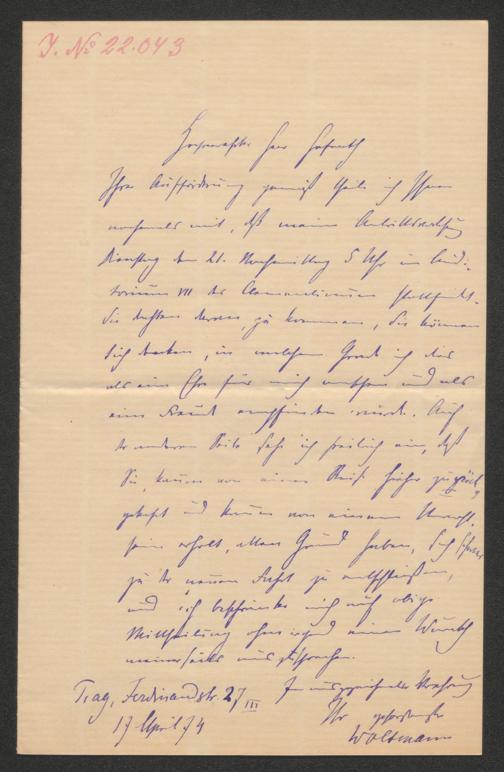 J. № 22.043
Hochverehrter Herr Hofrath
Ihrer Aufforderung gemäß theile ich Ihnen
nochmals mit, daß meine Antrittsvorlesung
Dienstag den 21. Nachmittag 5 Uhr im Audi-
torium VII des Clementinum stattfindet.
Sie dächten daran, zu kommen, Sie können
Sich denken, in welchem Grade ich das
als eine Ehre für mich ansehen und als
eine Freude empfinden würde. Auf
der anderen Seite sehe ich freilich ein, daß
Sie, kaum von einer Reise hieher zurück-
gekehrt und kaum von einem Unwohl-
sein erholt, allen Grund haben, Sich schwer
zu der neuen Fahrt zu entschließen,
und ich beschränke mich auf obige
Mittheilung ohne irgend einen Wunsch
meinerseits auszusprechen.
In ausgezeichneter Verehrung
Ihr gehorsamster
Woltmann
Prag, Ferdinandstr. 27 III
17 April 74